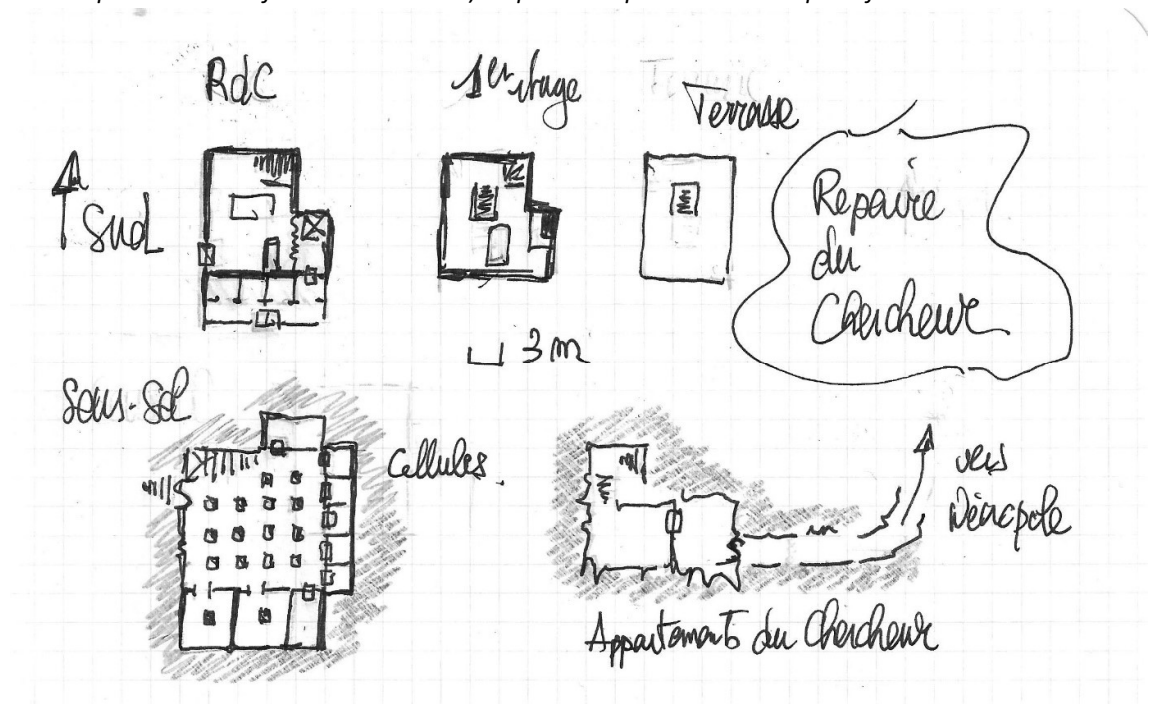 RdC
1er étage
Terrasse
Sud
Repaire
du
Chercheur
3 m
Sous-Sol
Cellules.
vers
Nécropole
Appartements du Chercheur